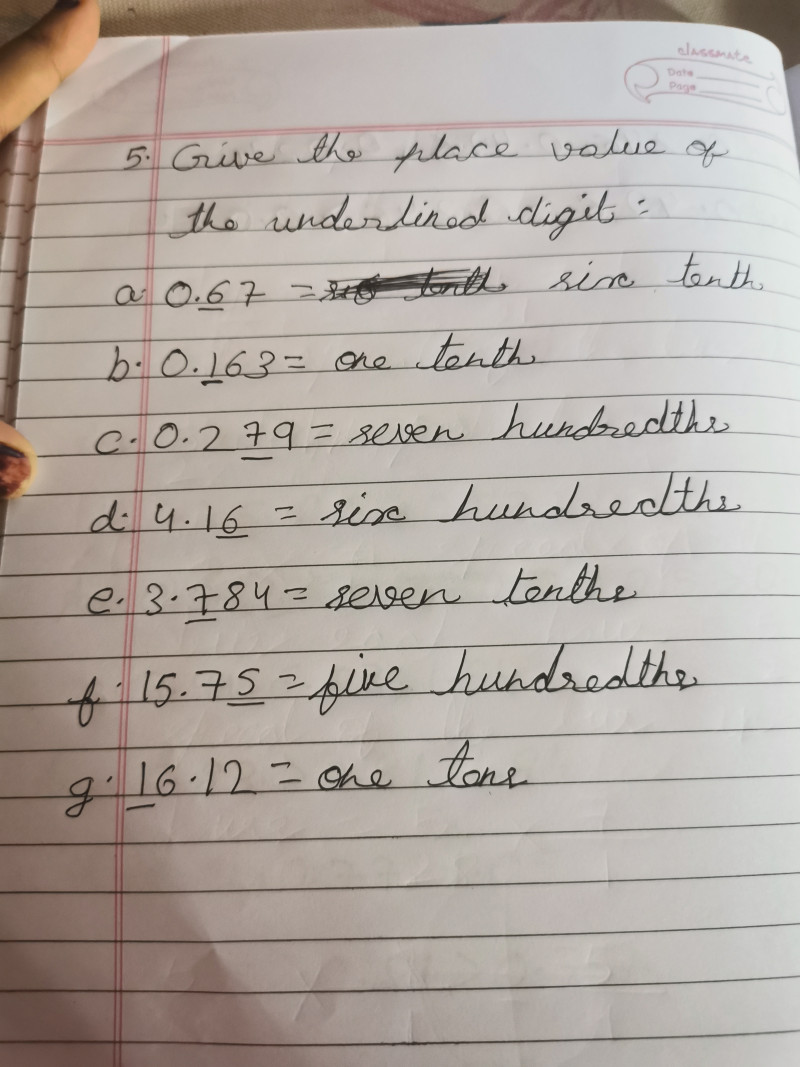 classmate
Date
Page
5. Give the place value of
the underlined digit :
a. 0.67 = six tenth
b. 0.163 = one tenth
c. 0.279 = seven hundredths
d. 4.16 = six hundredths
e. 3.784 = seven tenths
f. 15.75 = five hundredths
g. 16.12 = one tens